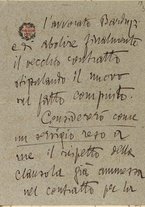 l'avvocato
e di abolire finalmente
il vecchio contratto
stipulando il nuovo
al fatto compiuto.
Considererò come
un servigio reso a
me il rispetto della
clausola già ammessa
nel contratto per la